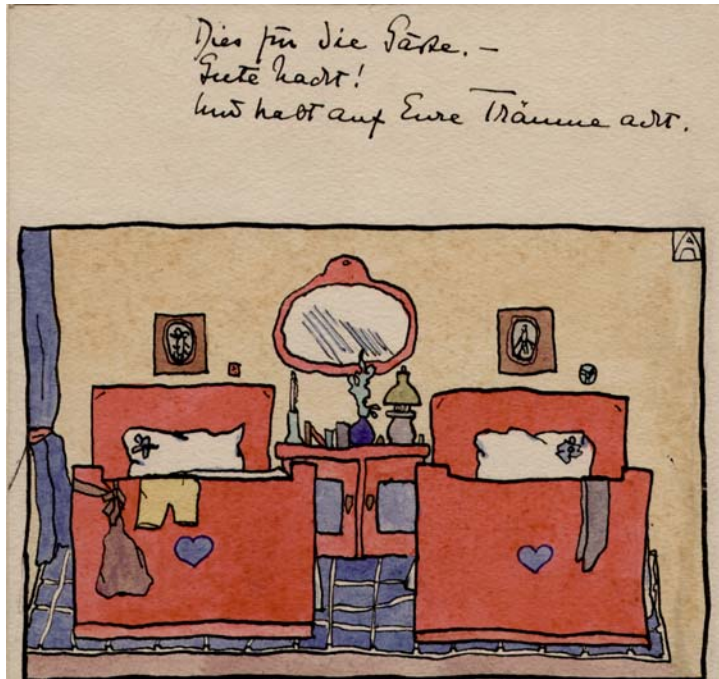 Dies für die Gäste. –
Gute Nacht!
Und habt auf Eure Träume acht.
A